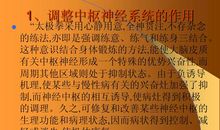 1、调整中枢神经系统的作用
"太极拳采用心静用意,全神贯注,不存杂念
的练法,亦即是强调练意、练气和练身三结合。
这种意识结合身体锻炼的方法,能使大脑皮质
有关中枢神经形成一个特殊的优势兴奋性,而
周期其他区域则处于抑制状态。由于负诱导
机理,使某些与慢性病有关的兴奋灶加强了抑
制,而神经中枢的相互诱导,使病情得到积极
的调理。久之,可修复和改善某些神经中枢的
生理功能和病理状态,因而病状得到控制、减